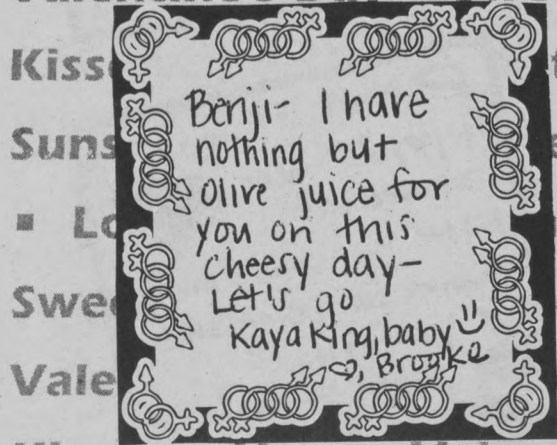 Kiss
Suns
Lo
Swee
Vale
Benji- I have
nothing but
olive juice for
you on this
cheesy day-
Let's go
Kaya King, baby
♡, Brooke